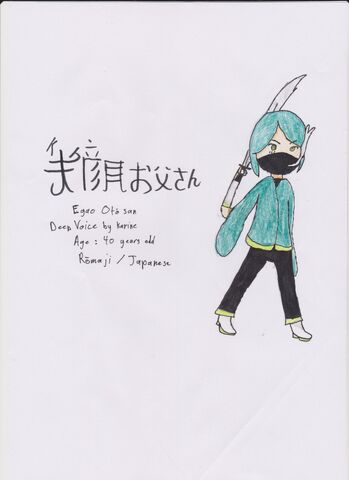 笑顔お父さん
Egao Otō san
Deep Voice by Karine
Age : 40 years old
Rōmaji / Japanese